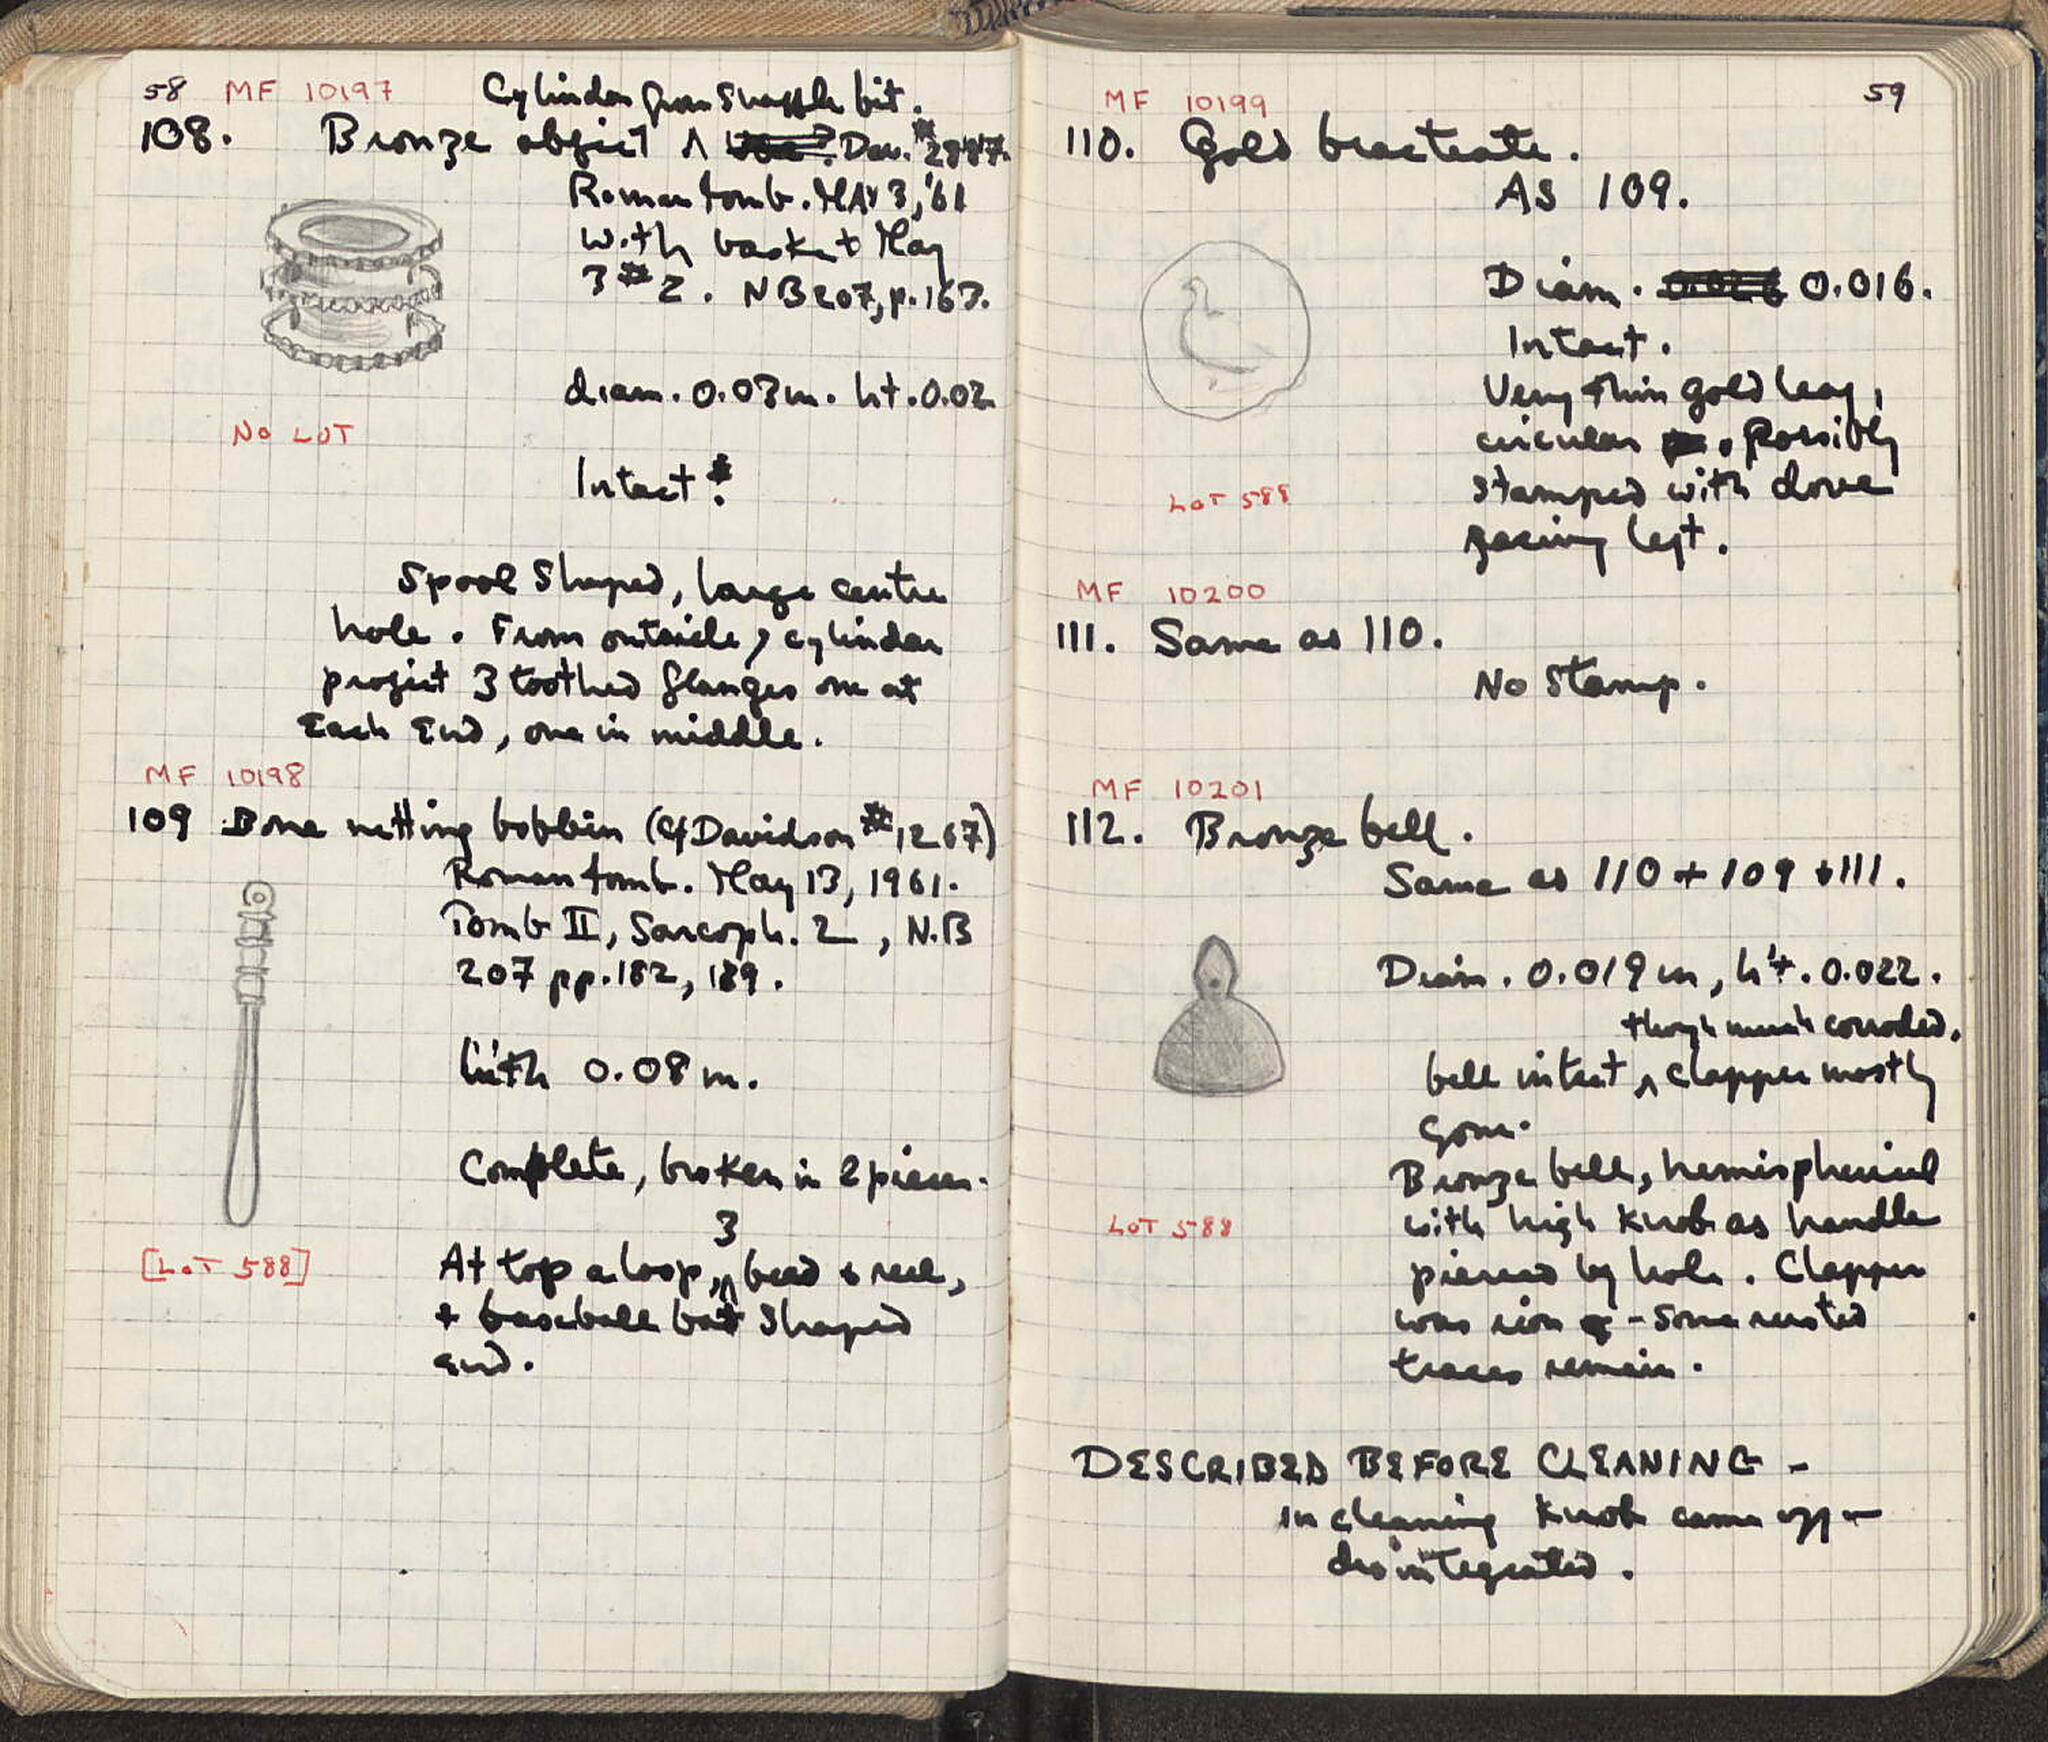 58 MF 10197 Cylinder from Snaffle bit.
108. Bronze object ^ Dav. #2887.
Roman tomb. MAY 3, '61
with basket May
3 #2. NB207, p.163.
diam. 0.03m. ht. 0.02
NO LOT
Intact.
Spool Shaped, large centre
hole. From outside, cylinder
project 3 toothed flanges one at
Each End, one in middle.
MF 10198
109 Bone netting bobbin (cf Davidson #1267)
Roman tomb. May 13, 1961.
Tomb II, Sarcoph. 2, N.B
207 pp. 182, 189.
lgth 0.08m.
Complete, broken in 2 pieces.
3
[LOT 588] At top a loop, ^ bead & reel,
+ baseball bat Shaped
End.
59
MF 10199
110. Gold bracteate.
AS 109.
Diam. 0.026 0.016.
Intact.
Very thin gold leaf,
circular, possibly
LOT 588 stamped with dove
facing left.
MF 10200
111. Same as 110.
No Stamp.
MF 10201
112. Bronze bell.
Same as 110 + 109 + 111.
Diam. 0.019m, h't. 0.022.
though much corroded.
bell intact ^, clapper mostly
gone.
Bronze bell, hemispherical
LOT 588 with high Knob as handle
pierced by hole. Clapper
was iron - Some rusted
traces remain.
DESCRIBED BEFORE CLEANING -
in cleaning Knob came off -
disintegrated.